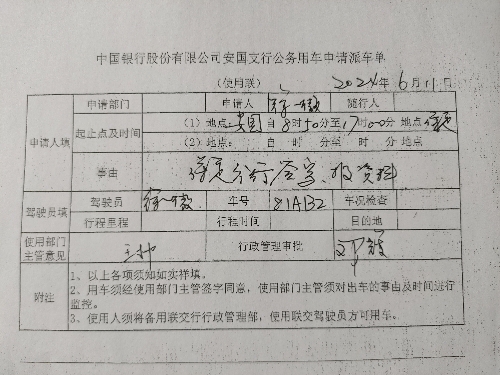 中国银行股份有限公司安国支行公务用车申请派车单
(使用联) 2024年6月11日
申请部门 申请人 随行人
申请人填 起止点及时间 (1) 地点:安国 自8时50分至17时00分 地点 保定
(2) 地点: 自 时 分至 时 分 地点
事由 保定分行签字、报资料
驾驶员填 驾驶员 车号 81AB2 车况检查
行程里程 行程时间 目的地
使用部门主管意见 行政管理审批
附注 1、以上各项须知如实祥填。
2、用车须经使用部门主管签字同意，使用部门主管须对出车的事由及时间进行
监控。
3、使用人须将备用联交行行政管理部，使用联交驾驶员方可用车。